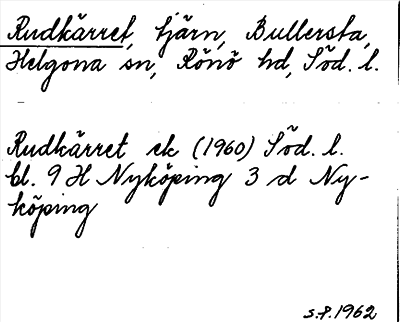 Rudkärret, tjärn, Bullersta,
Helgona sn, Rönö hd, Söd. l.
Rudkärret ek (1960) Söd. l.
bl. 9 H Nyköping 3 d Ny-
köping
S.P. 1962